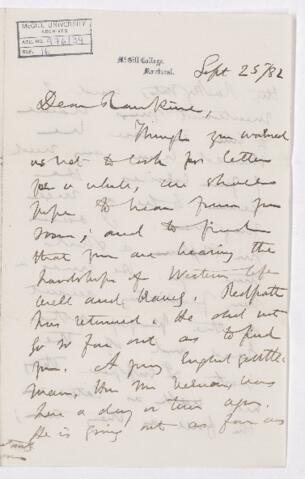 McGILL UNIVERSITY
ARCHIVES
ACC. NO. 976/34
REF. 16
McGill College,
Montreal.
Sept 25/82
Dear Rankine,
Though you warned
us not to look for letters
for a while, we shall
hope to hear from you
soon; and to find
that you are bearing the
hardships of Western life
well and bravely. Redpath
has returned. He did not
go so far out as to find
you. A young English gentle-
man, Hon Mr was
here a day or two ago.
He is going out as far as